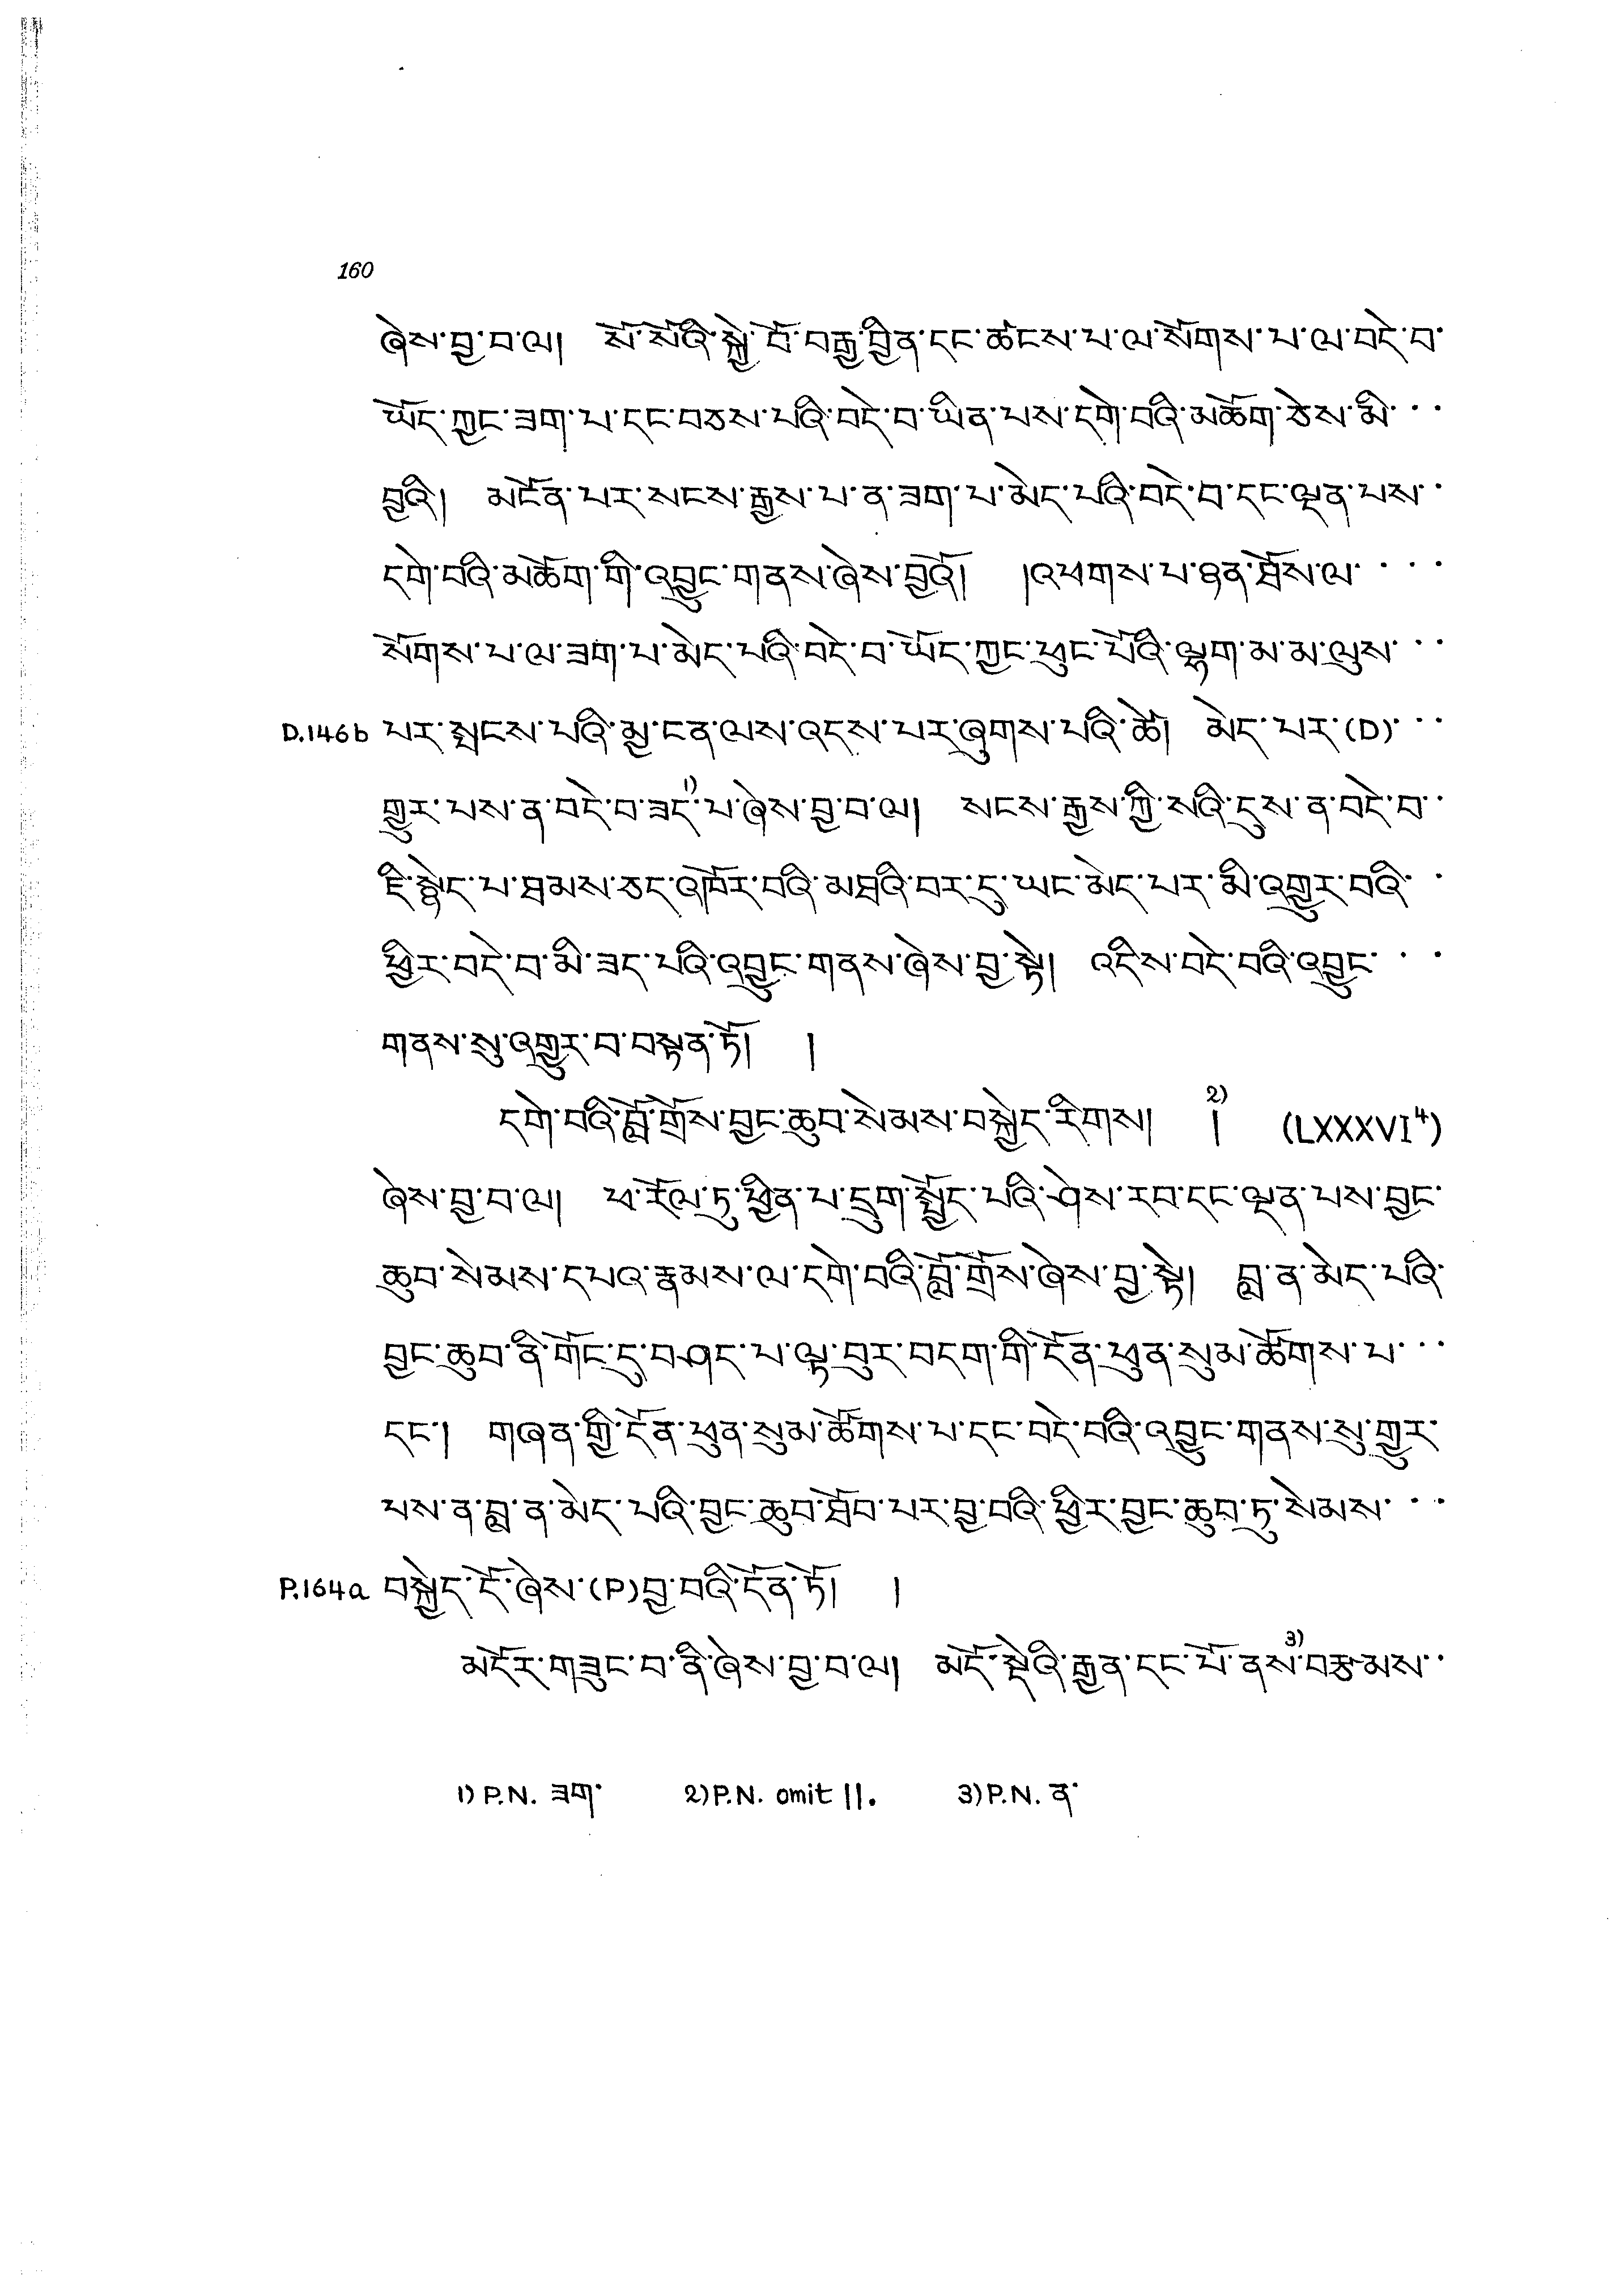 160
ཞེས་བྱ་བ་ལ། སོ་སོའི་སྐྱེ་བོ་བརྒྱ་བྱིན་དང་ཚངས་པ་ལ་སོགས་པ་ལ་བདེ་བ་
ཡོད་ཀྱང་ཟག་པ་དང་བཅས་པའི་བདེ་བ་ཡིན་པས་དགེ་བའི་མཆོག་ཅེས་མི་··
བྱའི། མངོན་པར་སངས་རྒྱས་པ་ན་ཟག་པ་མེད་པའི་བདེ་བ་དང་ལྡན་པས་·
དགེ་བའི་མཆོག་གི་འབྱུང་གནས་ཞེས་བྱའོ། །འཕགས་པ་ཉན་ཐོས་ལ་····
སོགས་པ་ལ་ཟག་པ་མེད་པའི་བདེ་བ་ཡོད་ཀྱང་ཕུང་པོའི་ལྷག་མ་མ་ལུས་··
D.146b པར་སྤངས་པའི་མྱ་ངན་ལས་འདས་པར་ཞུགས་པའི་ཚེ། མེད་པར་(D)··
གྱུར་པས་ན་བདེ་བ་ཟད་1)པ་ཞེས་བྱ་བ་ལ། སངས་རྒྱས་ཀྱི་སའི་དུས་ན་བདེ་བ་·
ཇི་སྙེད་པ་ཐམས་ཅད་འཁོར་བའི་མཐའི་བར་དུ་ཡང་མེད་པར་མི་འགྱུར་བའི་·
ཕྱིར་བདེ་བ་མི་ཟད་པའི་འབྱུང་གནས་ཞེས་བྱ་སྟེ། འདིས་བདེ་བའི་འབྱུང་··
གནས་སུ་འགྱུར་བ་བསྟན་ཏོ། །
དགེ་བའི་བློ་གྲོས་བྱང་ཆུབ་སེམས་བསྐྱེད་རིགས། །2) (LXXXVI4)
ཞེས་བྱ་བ་ལ། ཕ་རོལ་ཏུ་ཕྱིན་པ་དྲུག་སྤྱོད་པའི་ཤེས་རབ་དང་ལྡན་པས་བྱང་
ཆུབ་སེམས་དཔའ་རྣམས་ལ་དགེ་བའི་བློ་གྲོས་ཞེས་བྱ་སྟེ། བླ་ན་མེད་པའི་
བྱང་ཆུབ་ནི་གོང་དུ་བཤད་པ་ལྟ་བུར་བདག་གི་དོན་ཕུན་སུམ་ཚོགས་པ་··
དང་། གཞན་གྱི་དོན་ཕུན་སུམ་ཚོགས་པ་དང་བདེ་བའི་འབྱུང་གནས་སུ་གྱུར་
པས་ན་བླ་ན་མེད་པའི་བྱང་ཆུབ་ཐོབ་པར་བྱ་བའི་ཕྱིར་བྱང་ཆུབ་ཏུ་སེམས་··
P.164a བསྐྱེད་དོ་ཞེས་(P)བྱ་བའི་དོན་ཏོ། །
མདོར་གཟུང་བ་ནི་ཞེས་བྱ་བ་ལ། མདོ་སྡེའི་རྒྱན་དང་པོ་ནས་3)བརྩམས་·
1) P.N. ཟག་ 2) P.N. omit ||. 3) P.N. ན་